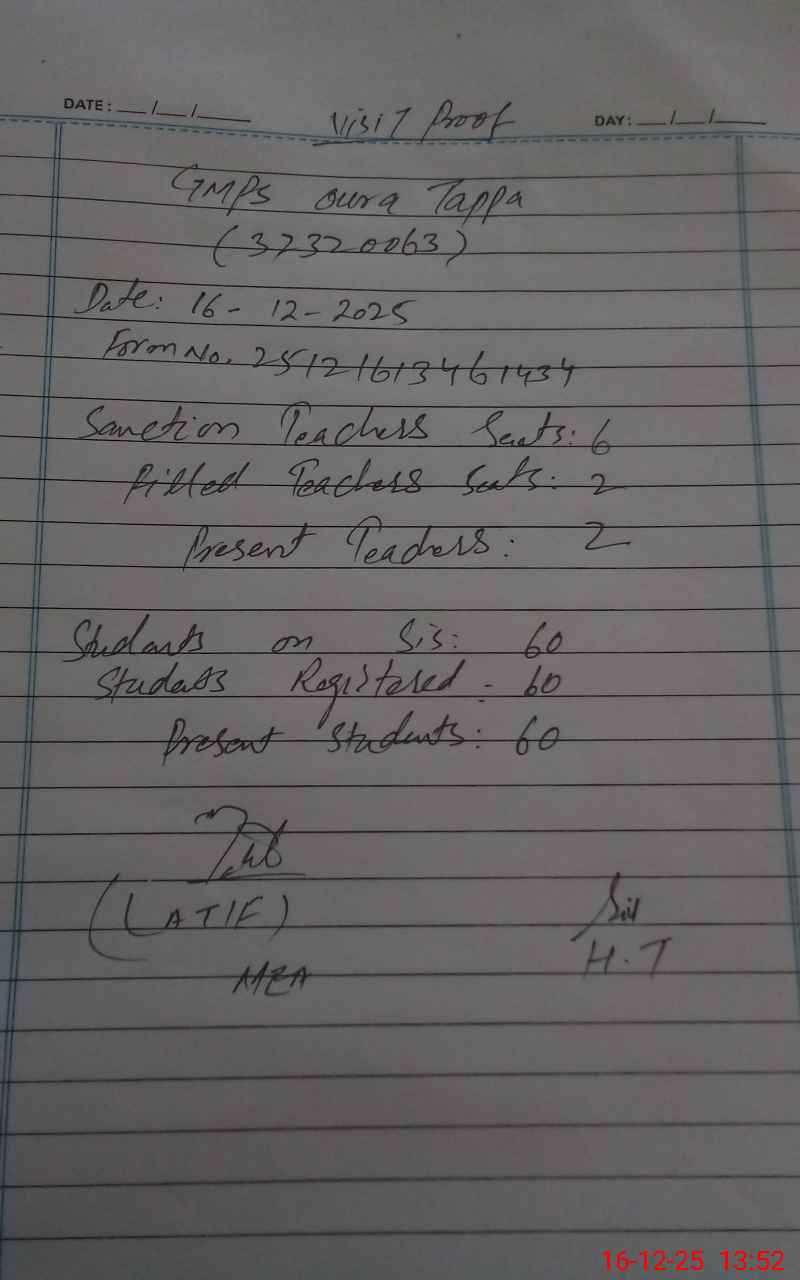 DATE: __/__/____ Visit Proof DAY: __/__/____
GMPS oura Tappa
(37320063)
Date: 16-12-2025
Form No. 25121613461434
Sanction Teachers Seats: 6
Filled Teachers Seats: 2
Present Teachers: 2
Students on Sis: 60
Students Registered: 60
Present Students: 60
(LATIF)
MEA
H.T
16-12-25 13:52